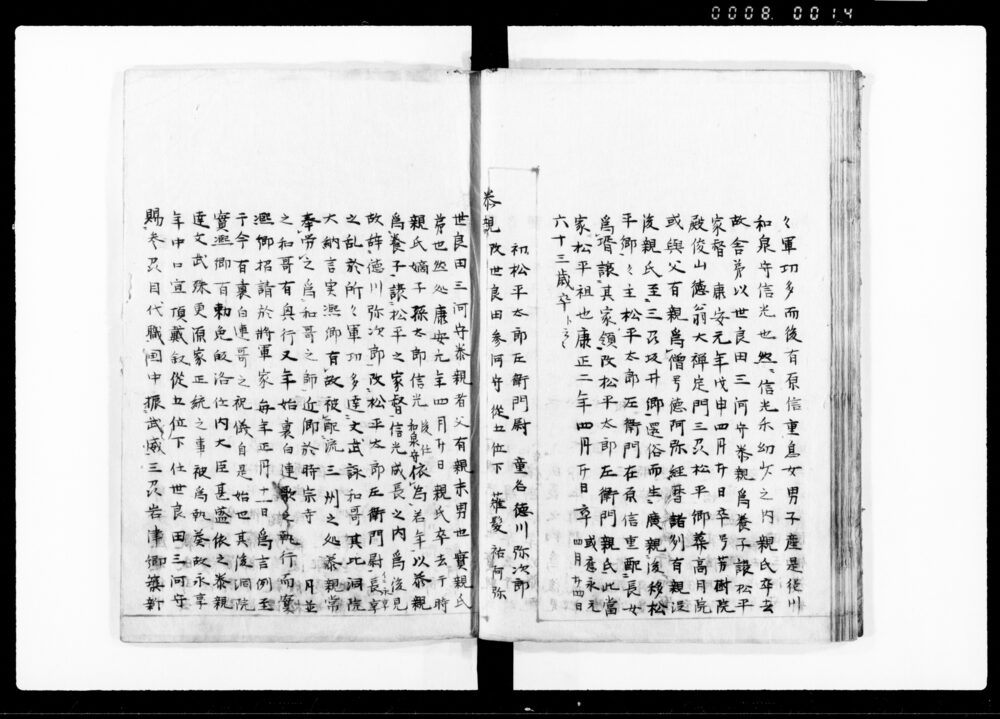 0008.0014
々軍功多而後有原信重息女男子産是後川
和泉守信光也然信光尓幼少之内親氏卒去
故舎弟以世良田三河守泰親為養子譲松平
家督 康安元年戊申四月廿日卒号芳樹院
殿俊山徳翁大禅定門三刕松平郷葬高月院
或與父有親為僧号徳阿弥経暦諸列有親没
後親氏至三刕坂井郷還俗而生廣親後移松
平郷々主松平太郎左衛門在原信重配長女
為壻譲其家領改松平太郎左衛門親氏此當
家松平祖也康正二年四月廿日卒 或應永元 四月廿四日
六十三歳卒ト云々
初松平太郎左衛門尉 童名徳川弥次郎
泰親 改世良田参河守 従五位下 薙髪祐阿弥
世良田三河守泰親者父有親末男也實親氏
弟也然処康安元年四月廿日親氏卒去于時
親氏嫡子孫太郎信光 後仕和泉守 依為若年以泰親
為養子譲松平之家督信光成長之内為後見
故辞徳川弥次郎改松平太郎左衛門尉長卓
之乱於所々軍功多達文武詠和哥其比洞院
大納言実凞卿有故被配流三州之処泰親常
奉労之為和哥之師近卿於時宗寺 月並
之和哥有興行又年始裏白連歌之執行而實
凞卿招請於将軍家毎年正月十一日為吉例至
于今有裏白連哥之祝儀自是始也其後洞院
實凞卿有勅免皈洛仕内大臣甚益依之泰親
達文武殊更源家正統之事被為執奏故永享
年中口宣頂蔵叙従五位下仕世良田三河守
賜参刕目代職国中振武威三刕岩津郷築新